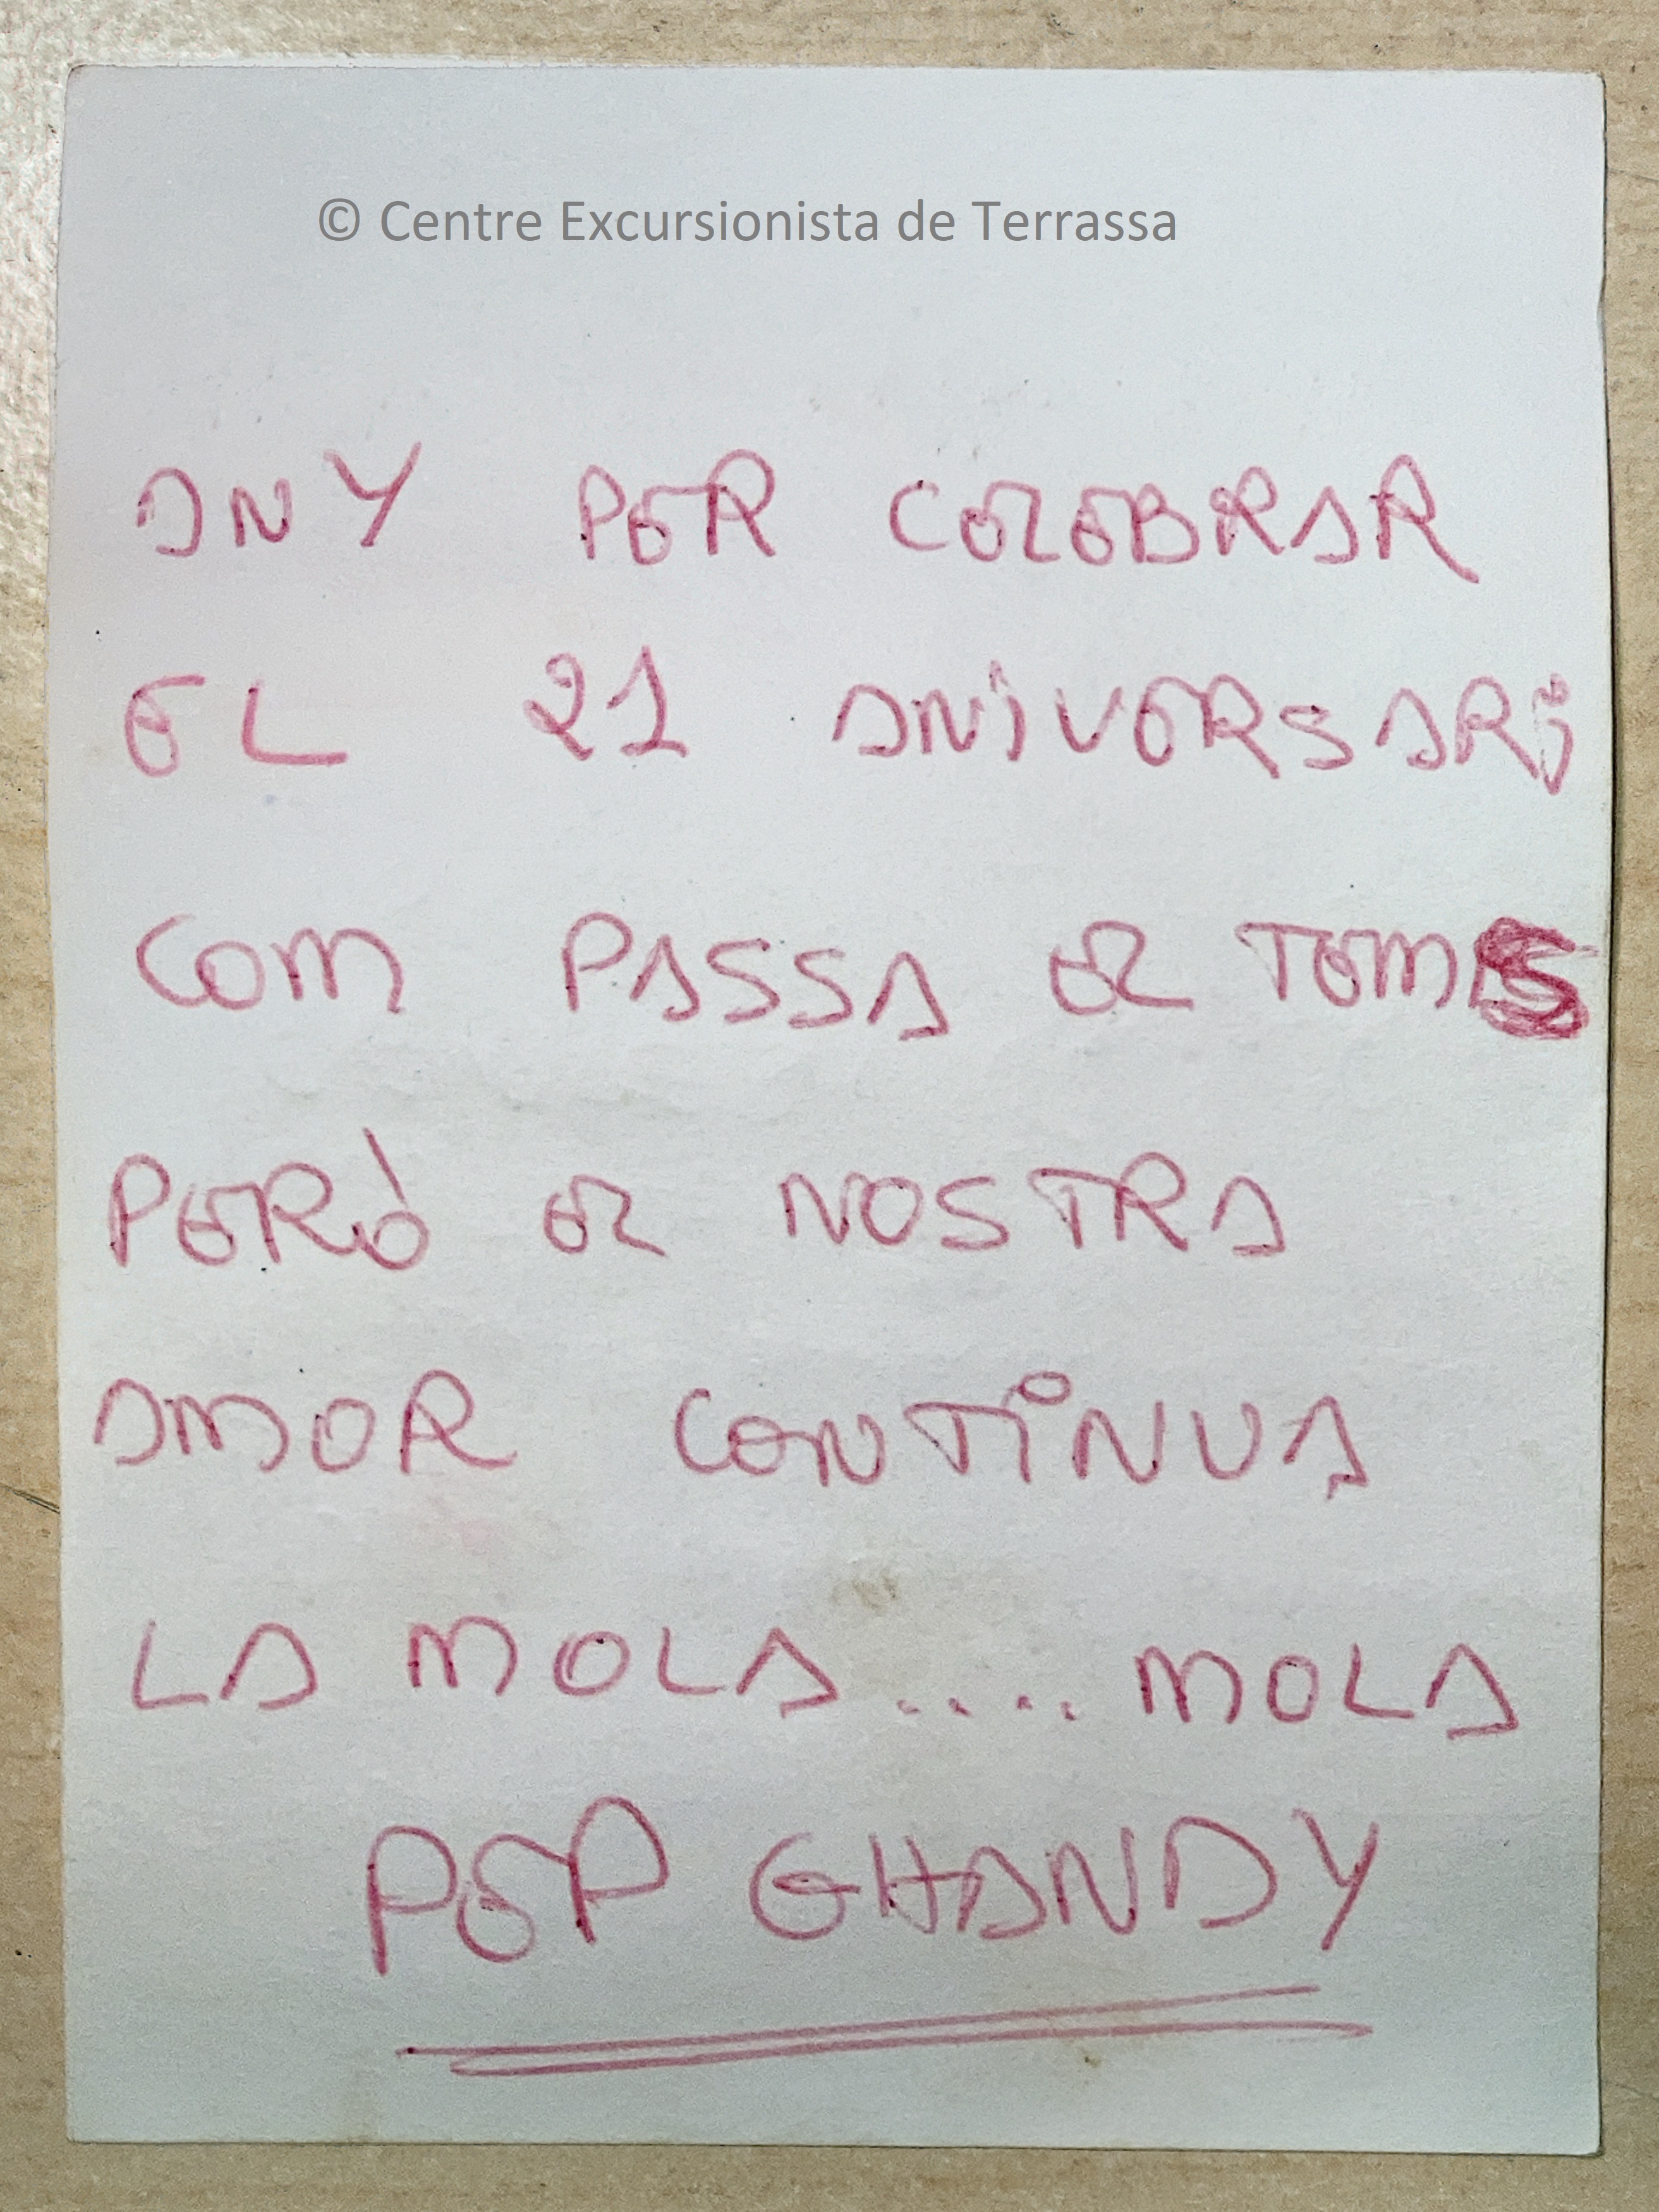 © Centre Excursionista de Terrassa
ANY PER CELEBRAR
EL 21 ANIVERSARi
COM PASSA EL TEMPS
PERÒ EL NOSTRA
AMOR CONTiNUA
LA MOLA.... MOLA
PEP GHANDY